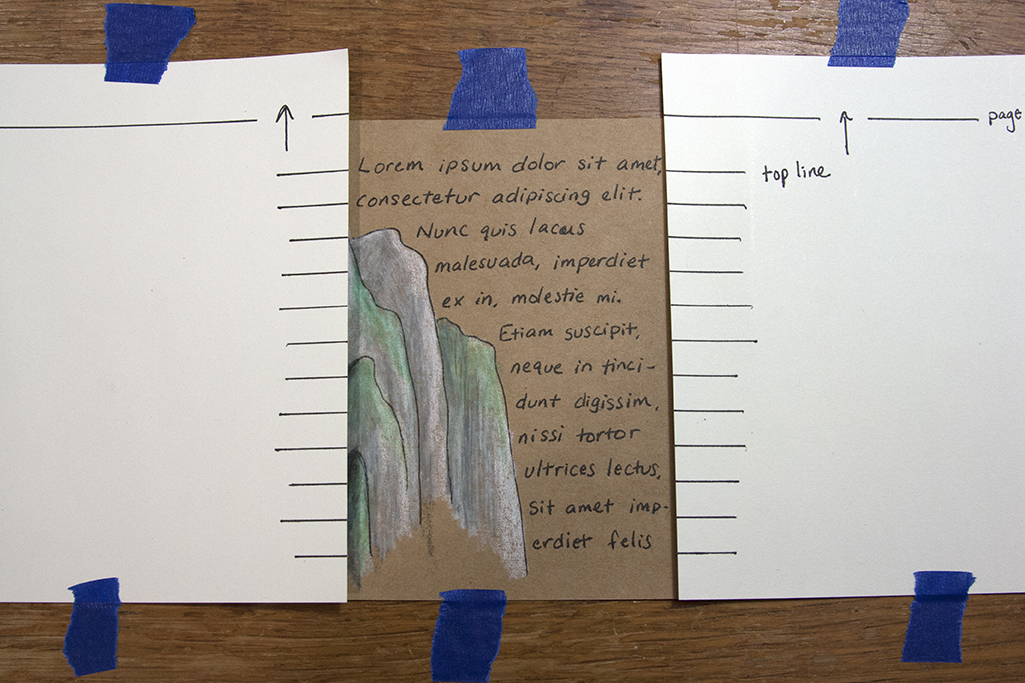 page
top line
Lorem ipsum dolor sit amet,
consectetur adipiscing elit.
Nunc quis lacus
malesuada, imperdiet
ex in, molestie mi.
Etiam suscipit,
neque in tinci-
dunt digissim,
nissi tortor
ultrices lectus,
sit amet imp-
erdiet felis